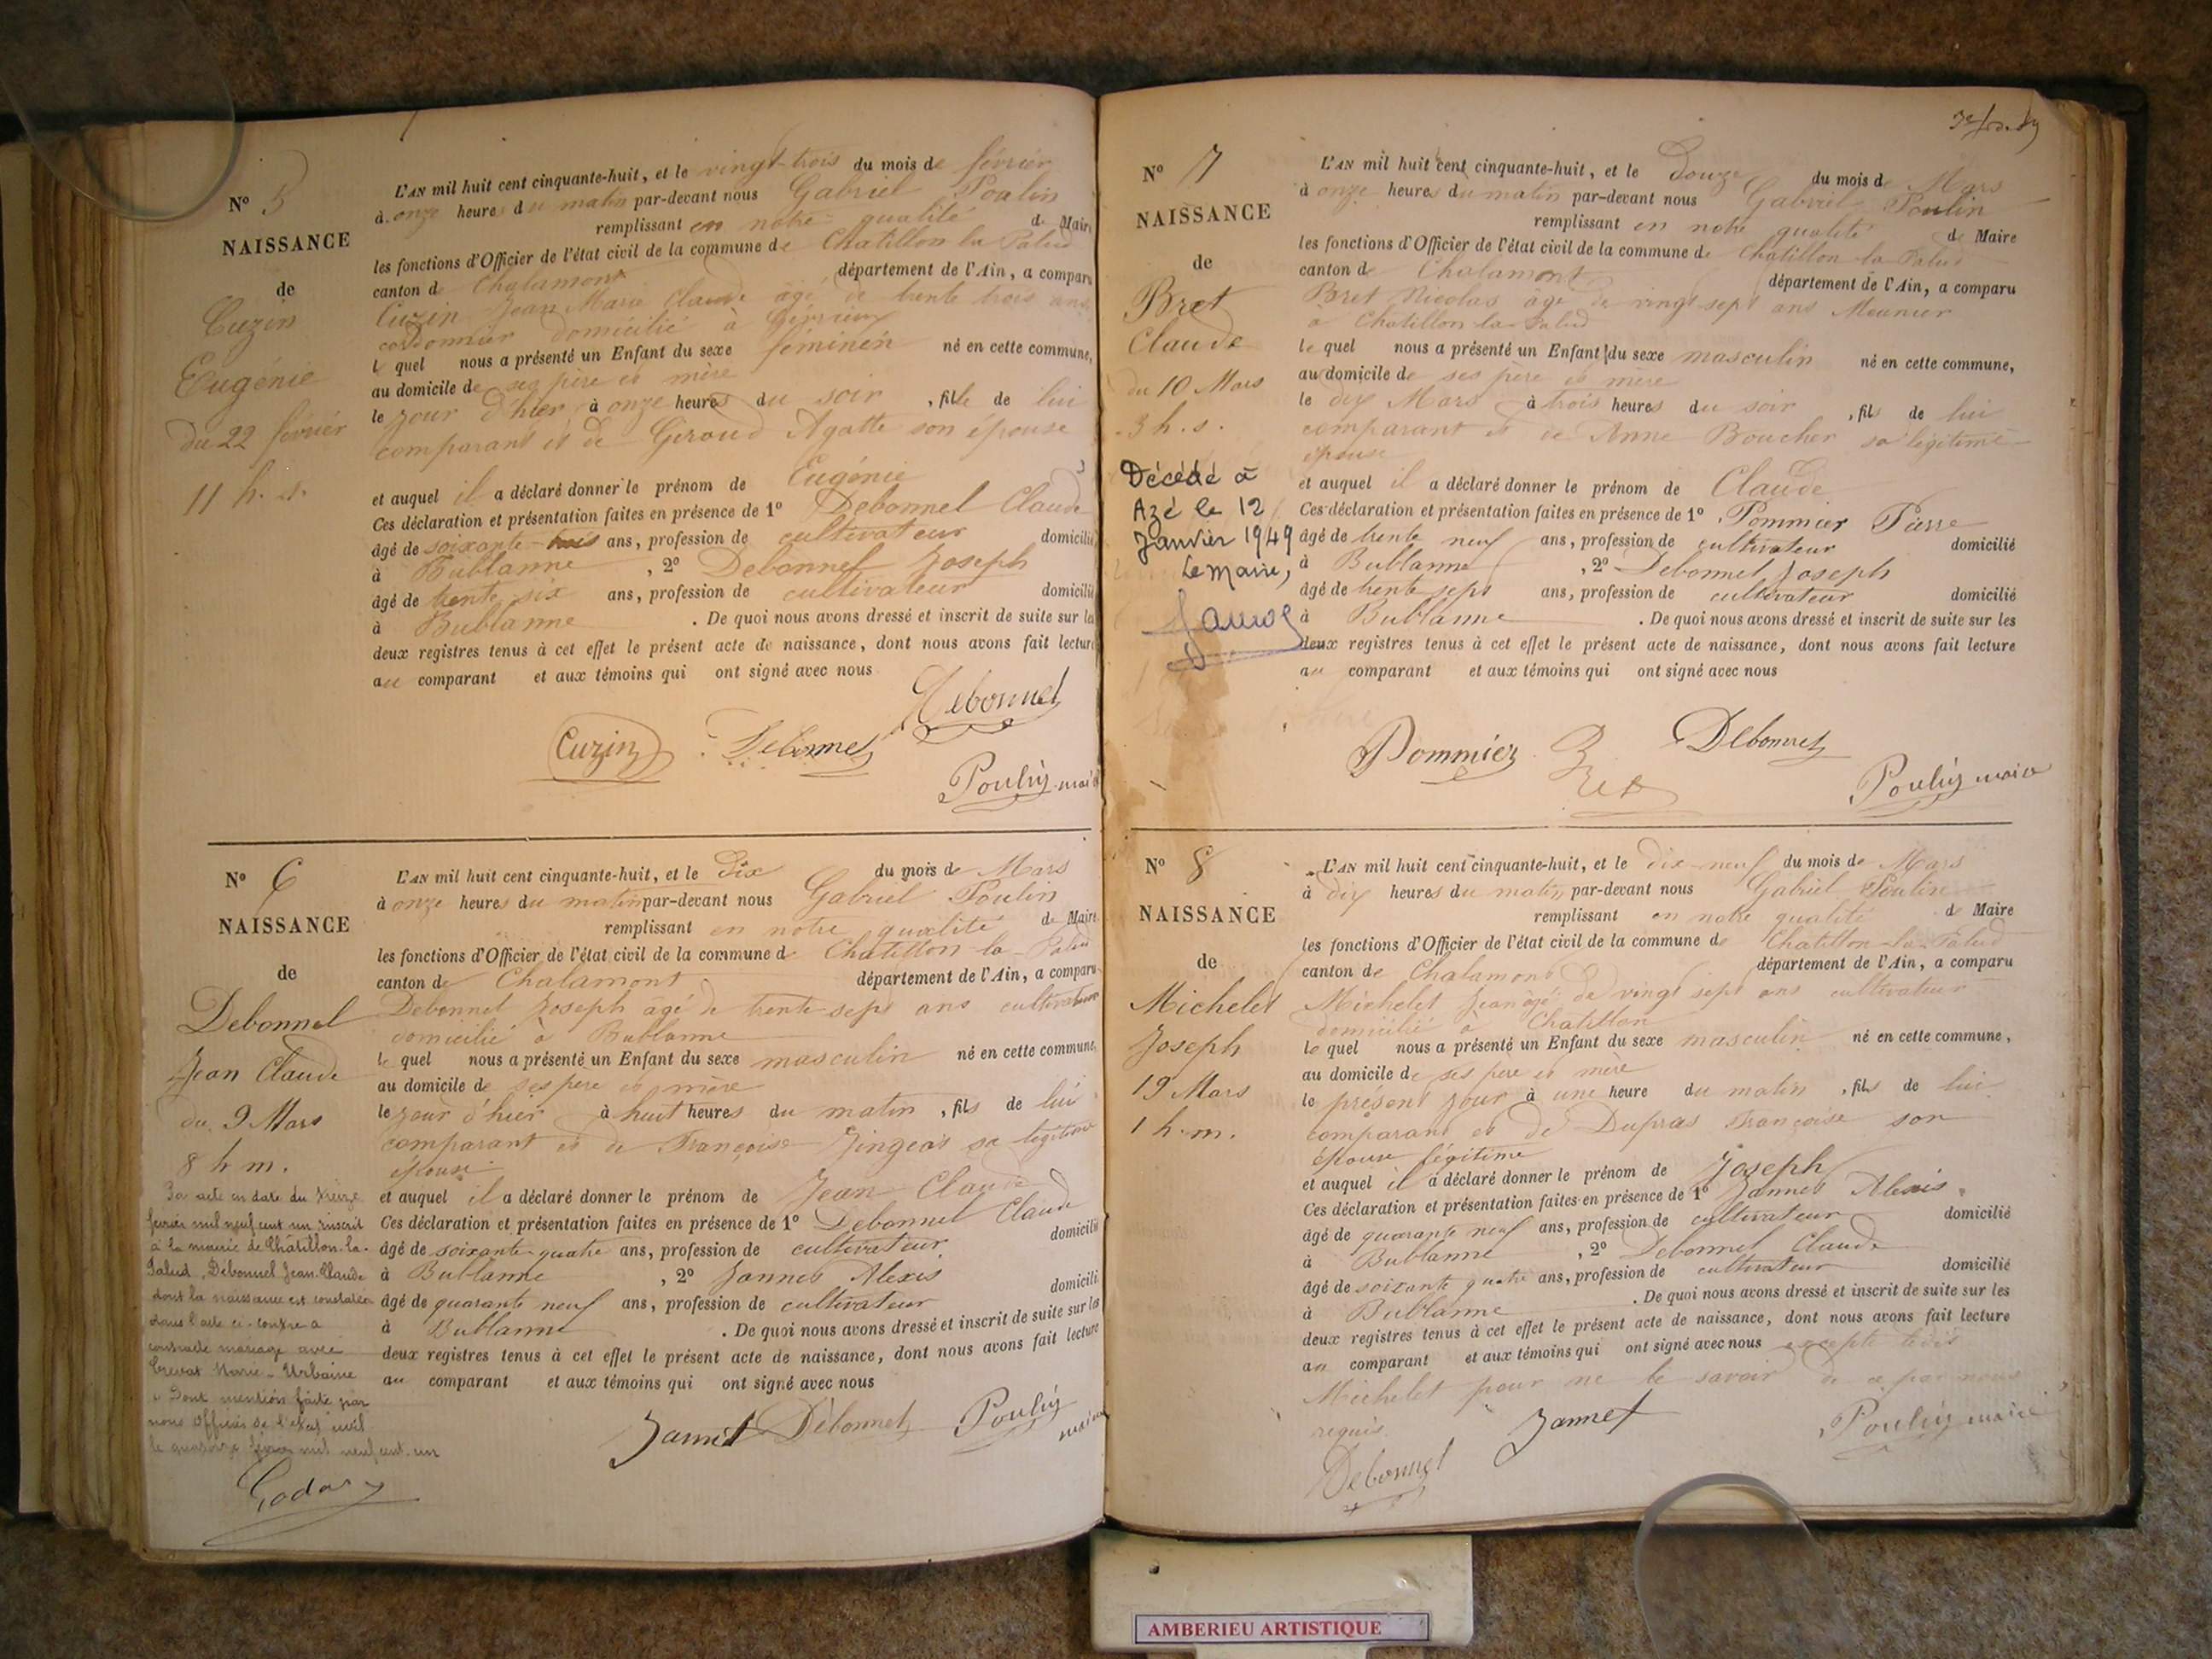 N° 5
NAISSANCE
de
Cuzin
Eugénie
du 22 février
11 h. s.
L'AN mil huit cent cinquante-huit, et le vingt-trois du mois de février
à onze heures du matin par-devant nous Gabriel Poulin
remplissant en notre qualité de Maire
les fonctions d'Officier de l'état civil de la commune de Chatillon la Palud
canton de Chalamont département de l'Ain, a comparu
Cuzin Jean Marie Claude âgé de trente trois ans
cordonnier domicilié à
le quel nous a présenté un Enfant du sexe féminin né en cette commune,
au domicile de ses père et mère
le jour d'hier à onze heures du soir, fille de lui
comparant et de Giroud Agatte son épouse
et auquel il a déclaré donner le prénom de Eugénie
Ces déclaration et présentation faites en présence de 1° Debonnel Claude
âgé de soixante-trois ans, profession de cultivateur domicilié
à Bublanne, 2° Debonnel Joseph
âgé de trente six ans, profession de cultivateur domicilié
à Bublanne. De quoi nous avons dressé et inscrit de suite sur les
deux registres tenus à cet effet le présent acte de naissance, dont nous avons fait lecture
au comparant et aux témoins qui ont signé avec nous
Debonnel
Cuzin Debonnel
Poulin maire
N° 6
NAISSANCE
de
Debonnel
Jean Claude
du 9 Mars
8 h m.
Par acte en date du treize
février mil neuf cent un inscrit
à la mairie de Châtillon-la-
Palud, Debonnel Jean-Claude
dont la naissance est constatée
dans l'acte ci-contre a
contracté mariage avec
Marie-Urbaine
Dont mention faite par
nous Officier de l'état civil
le quatorze février mil neuf cent un
L'AN mil huit cent cinquante-huit, et le Dix du mois de Mars
à onze heures du matin par-devant nous Gabriel Poulin
remplissant en notre qualité de Maire
les fonctions d'Officier de l'état civil de la commune de Chatillon-la-Palud
canton de Chalamont département de l'Ain, a comparu
Debonnel Joseph âgé de trente-sept ans cultivateur
domicilié à Bublanne
le quel nous a présenté un Enfant du sexe masculin né en cette commune,
au domicile de ses père et mère
le jour d'hier à huit heures du matin, fils de lui
comparant et de Françoise sa légitime
épouse
et auquel il a déclaré donner le prénom de Jean Claude
Ces déclaration et présentation faites en présence de 1° Debonnel Claude
âgé de soixante-quatre ans, profession de cultivateur domicilié
à Bublanne, 2° Jannet Alexis
âgé de quarante neuf ans, profession de cultivateur domicilié
à Bublanne. De quoi nous avons dressé et inscrit de suite sur les
deux registres tenus à cet effet le présent acte de naissance, dont nous avons fait lecture
au comparant et aux témoins qui ont signé avec nous
Jannet Debonnel Poulin maire
N° 7
NAISSANCE
de
Bret
Claude
du 10 Mars
3 h. s.
Décédé à
Azé le 12
Janvier 1949
Le Maire,
L'AN mil huit cent cinquante-huit, et le Douze du mois de Mars
à onze heures du matin par-devant nous Gabriel Poulin
remplissant en notre qualité de Maire
les fonctions d'Officier de l'état civil de la commune de Chatillon-la-Palud
canton de Chalamont département de l'Ain, a comparu
Bret Nicolas âgé de vingt sept ans Meunier
à Chatillon-la-Palud
le quel nous a présenté un Enfant du sexe masculin né en cette commune,
au domicile de ses père et mère
le dix Mars à trois heures du soir, fils de lui
comparant et de Anne Boucher sa légitime
épouse
et auquel il a déclaré donner le prénom de Claude
Ces déclaration et présentation faites en présence de 1° Pommier Pierre
âgé de trente neuf ans, profession de cultivateur domicilié
à Bublanne, 2° Debonnel Joseph
âgé de trente sept ans, profession de cultivateur domicilié
à Bublanne. De quoi nous avons dressé et inscrit de suite sur les
deux registres tenus à cet effet le présent acte de naissance, dont nous avons fait lecture
au comparant et aux témoins qui ont signé avec nous
Pommier Bret Debonnel
Poulin maire
N° 8
NAISSANCE
de
Michelet
Joseph
19 Mars
1 h. m.
L'AN mil huit cent cinquante-huit, et le dix-neuf du mois de Mars
à dix heures du matin par-devant nous Gabriel Poulin
remplissant en notre qualité de Maire
les fonctions d'Officier de l'état civil de la commune de Chatillon-la-Palud
canton de Chalamont département de l'Ain, a comparu
Michelet Jean âgé de vingt sept ans cultivateur
domicilié à Chatillon
le quel nous a présenté un Enfant du sexe masculin né en cette commune,
au domicile de ses père et mère
le présent jour à une heure du matin, fils de lui
comparant et de Dupras Françoise son
épouse légitime
et auquel il a déclaré donner le prénom de Joseph
Ces déclaration et présentation faites en présence de 1° Jannet Alexis
âgé de quarante neuf ans, profession de cultivateur domicilié
à Bublanne, 2° Debonnel Claude
âgé de soixante quatre ans, profession de cultivateur domicilié
à Bublanne. De quoi nous avons dressé et inscrit de suite sur les
deux registres tenus à cet effet le présent acte de naissance, dont nous avons fait lecture
au comparant et aux témoins qui ont signé avec nous excepté ledit
Michelet pour ne le savoir de ce par nous
requis.
Jannet Poulin maire
Debonnel
AMBERIEU ARTISTIQUE